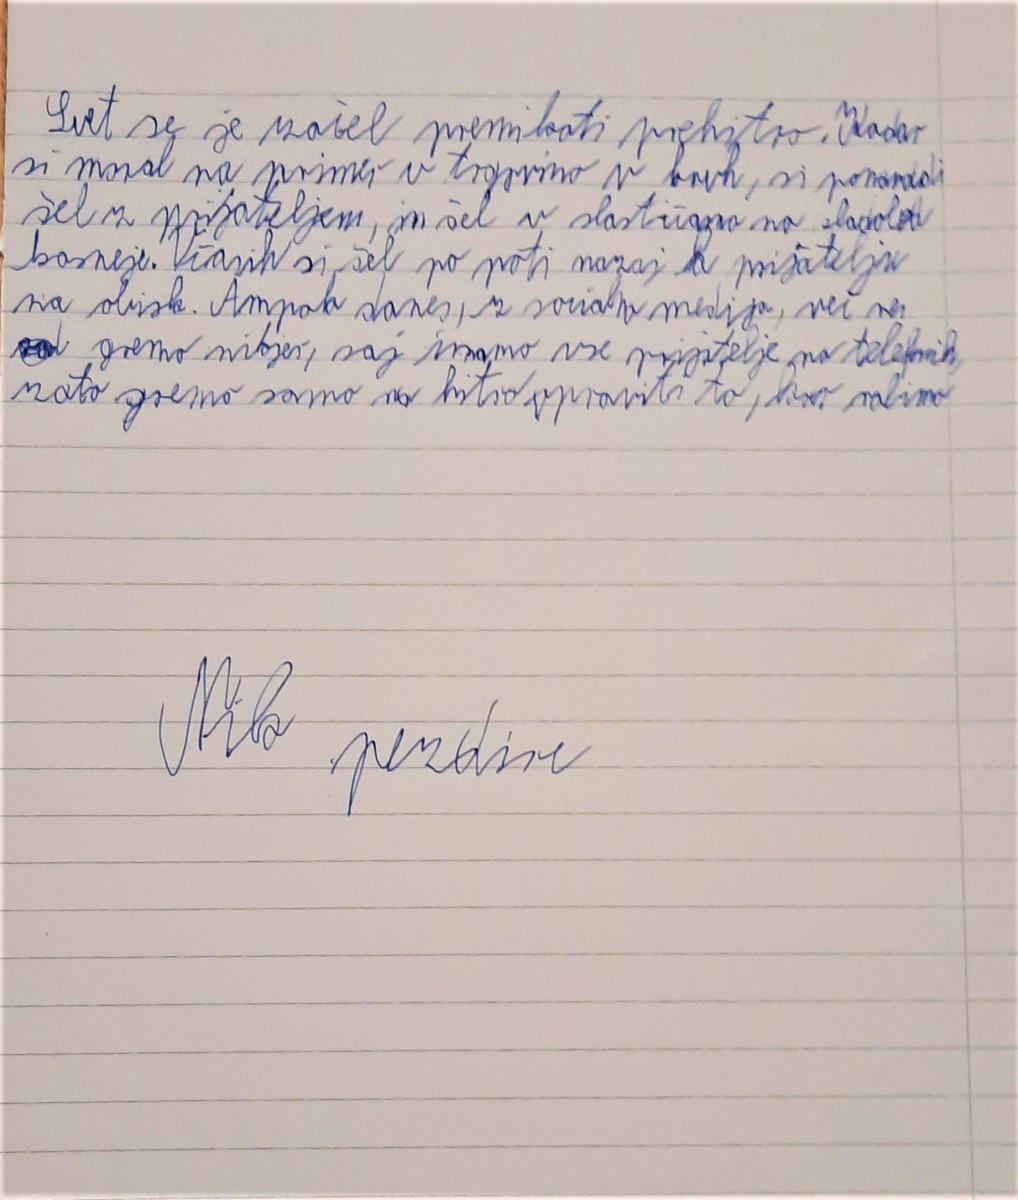 Svet se je začel premikati prehitro. Kadar
si moral na primer v trgovino v kruh, si ponavadi
šel z prijateljem, in šel v slaščičarno na sladoled
kasneje. Včasih si šel po poti nazaj k prijatelju
na obisk. Ampak danes, z socialn medija, več ne
gremo nikjer, saj imamo vse prijatelje na telefonih,
zato gremo samo na hitro opraviti to, kar rabimo
Nik